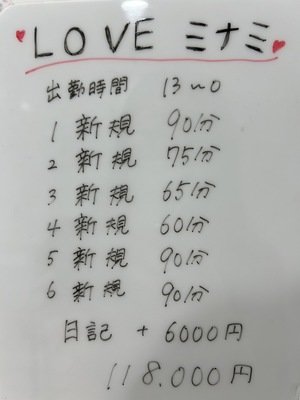 LOVE ミナミ
出勤時間 13~0
1 新規 90分
2 新規 75分
3 新規 65分
4 新規 60分
5 新規 90分
6 新規 90分
日記 + 6000円
118.000円